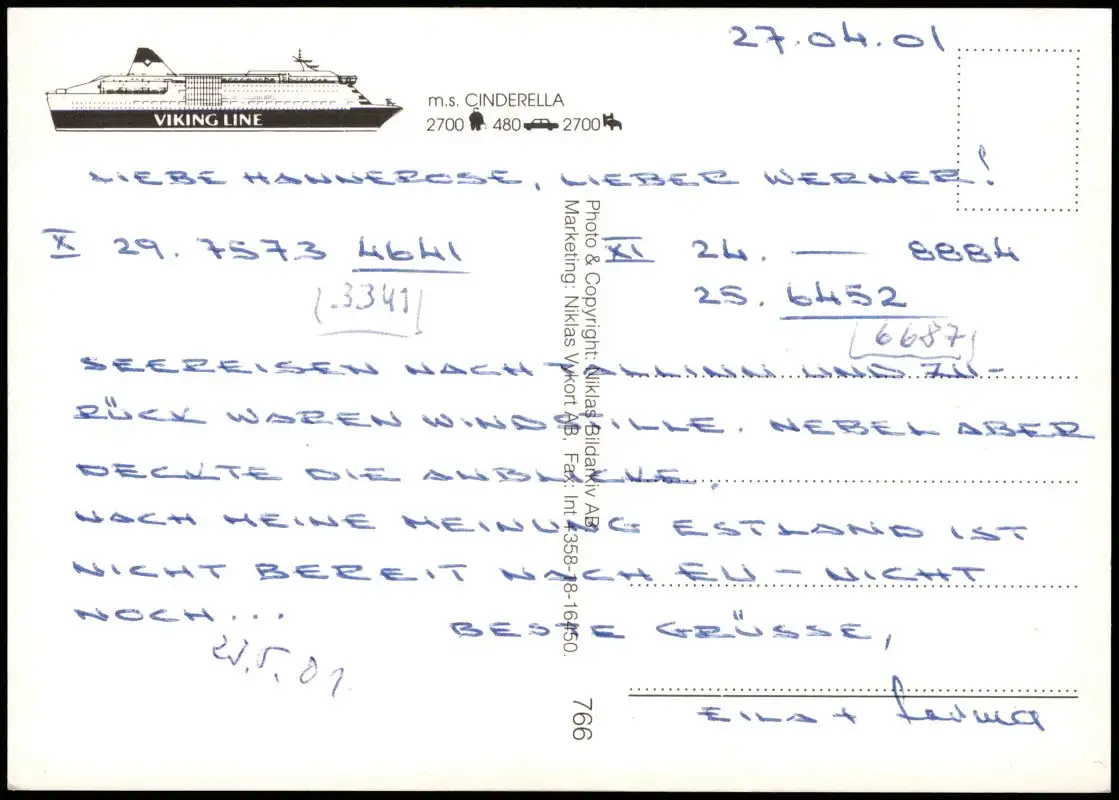 27.04.01
VIKING LINE
m.s. CINDERELLA
2700 480 2700
LIEBE HANNEROSE, LIEBER WERNER!
X 29. 7573 4641 XI 24. — 8884
25. 6452
3341
6687
SEEREISEN NACH TALLINN UND ZU-
RÜCK WAREN WINDSTILLE. NEBEL ABER
DECKTE DIE ANBLICKE.
NACH MEINE MEINUNG ESTLAND IST
NICHT BEREIT NACH EU - NICHT
NOCH...
BESTE GRÜSSE,
EILA +
Photo & Copyright: Niklas Bildarkiv AB.
Marketing: Niklas Vykort AB, Fax: Int +358-18-16450.
766